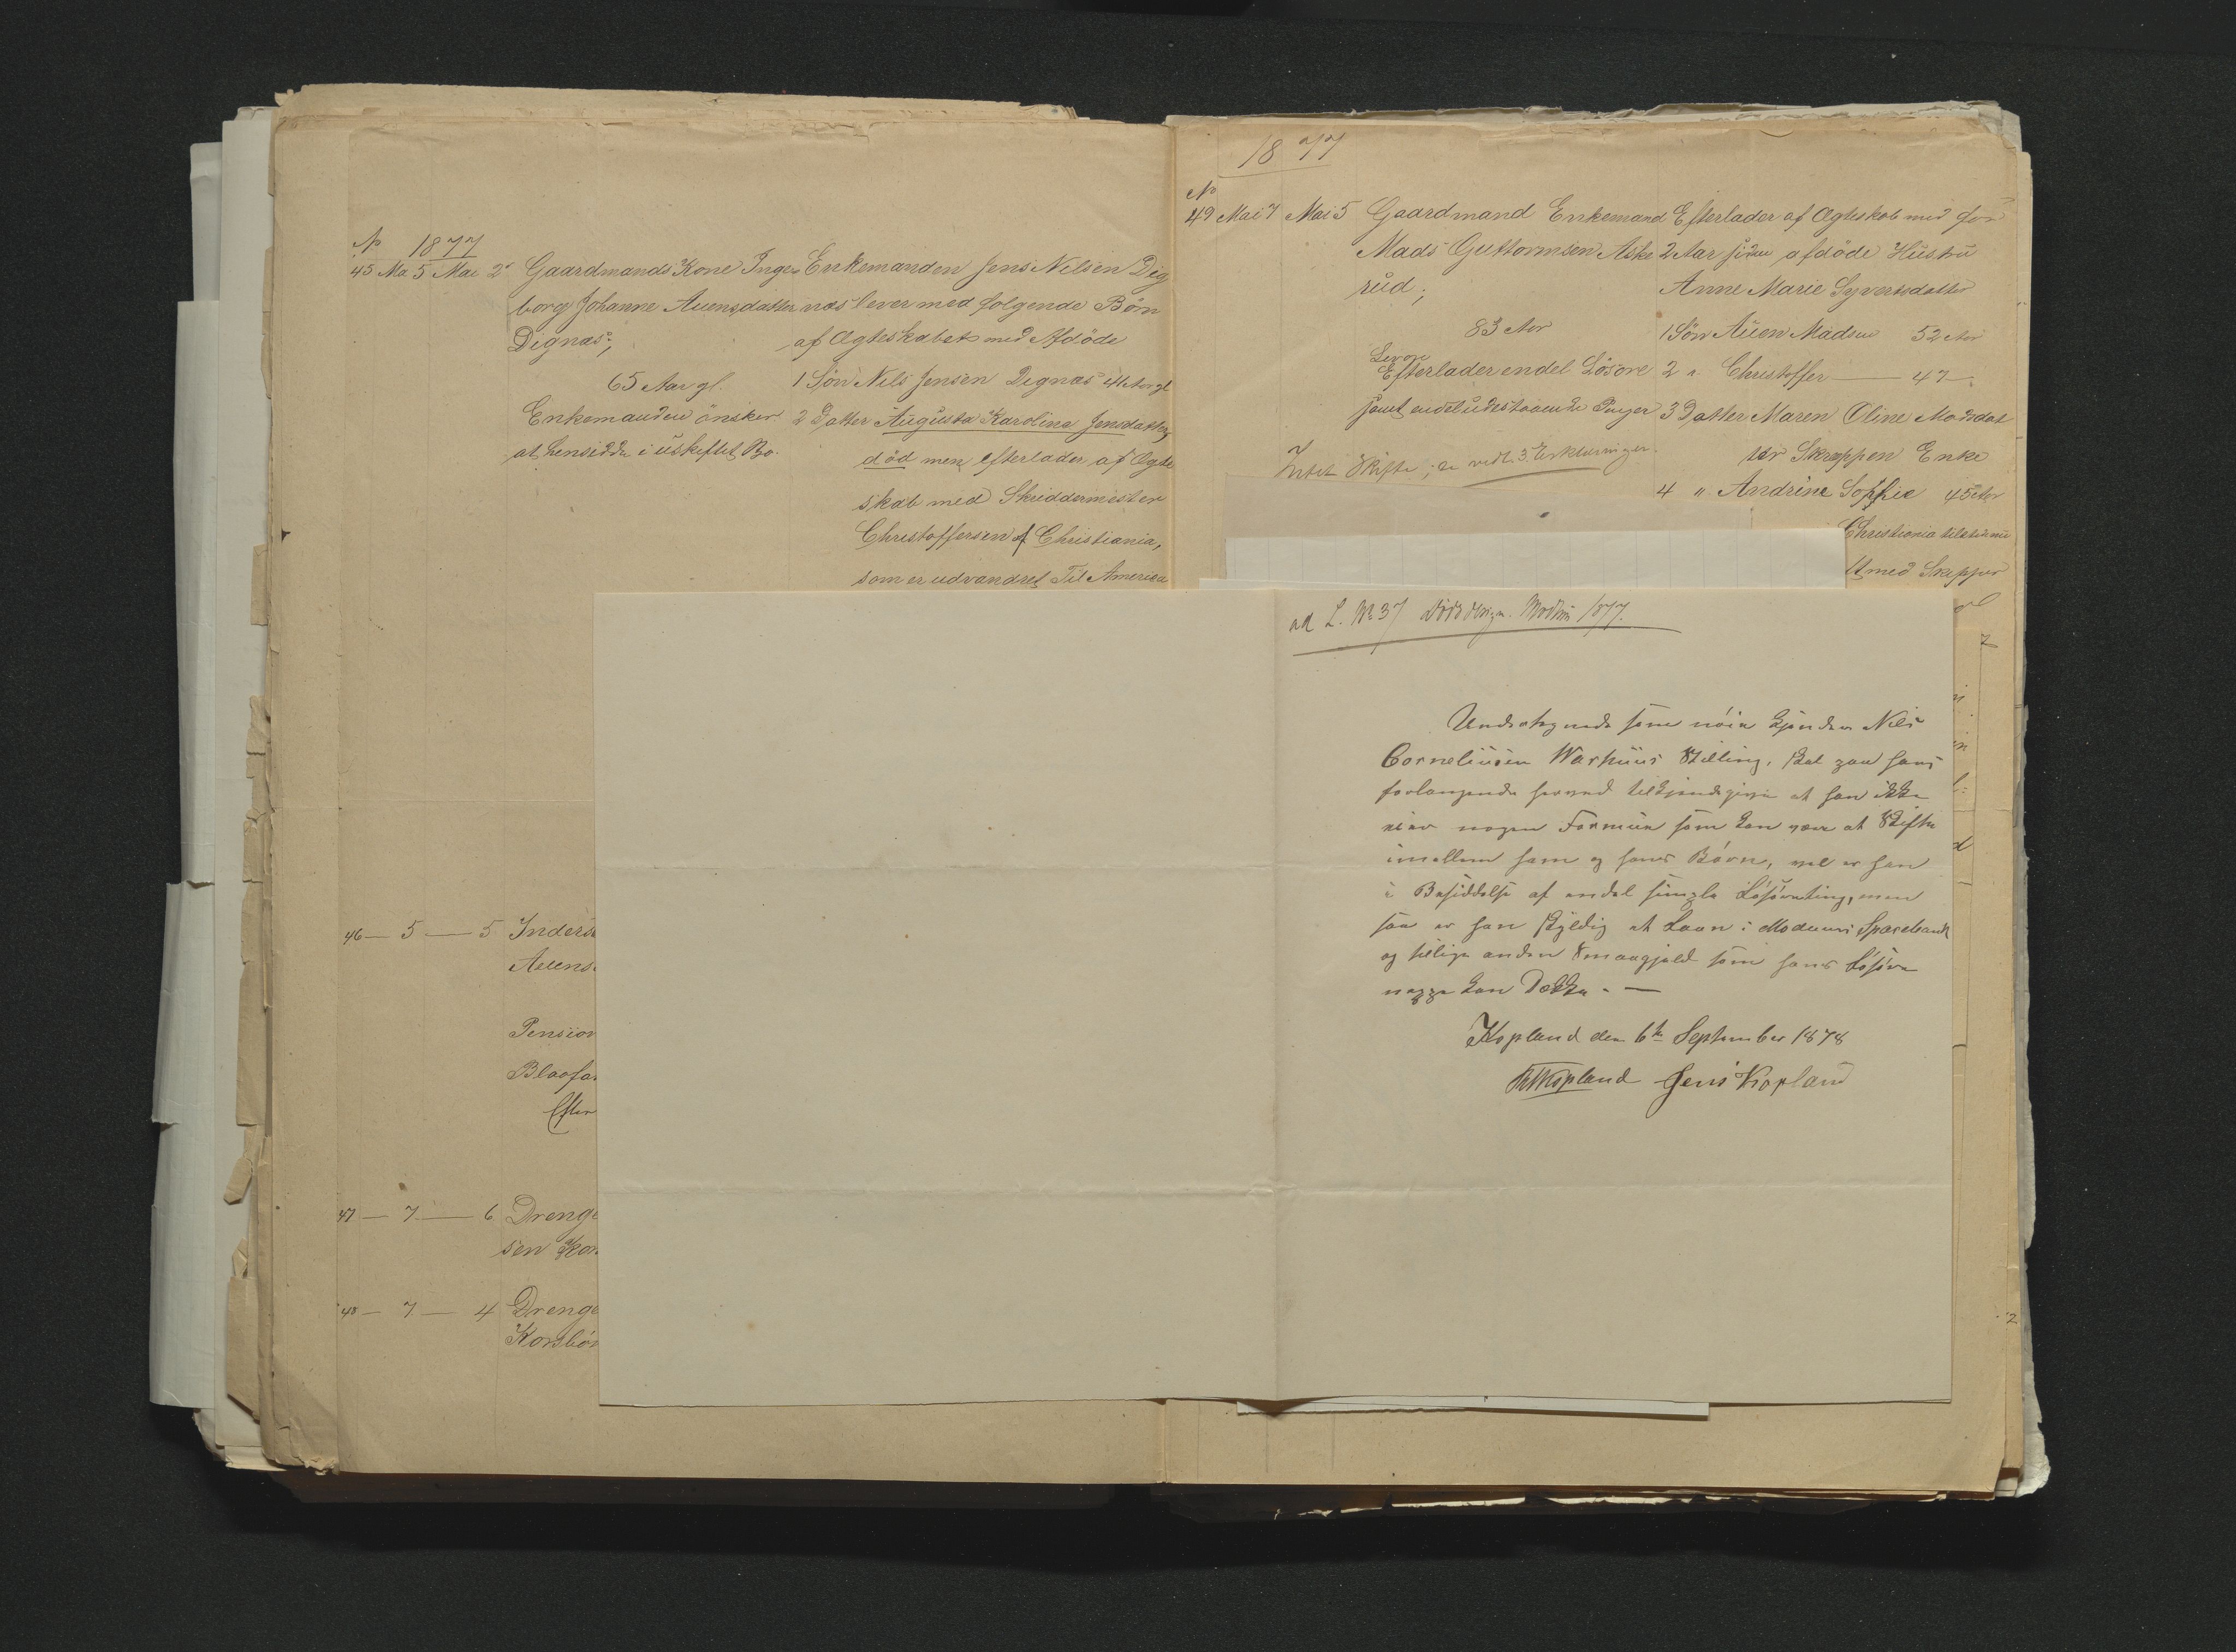 No 1877
45 Ma 5 Mai 2. Gaardmands Kone Inge
borg Johanne Auensdatter
Dignæs;
65 Aar gl.
Enkemanden önsker
at hensidde i uskiftet Bo.
Enkemanden Jens Nilsen Dig
næs lever med følgende Börn
af Ægteskabet med Afdöde
1 Sön Nils Jensen Dignæs 41 Aar gl
2 Datter Augusta Karolina Jensdatter
död men efterlader af Ægte
skab med Skreddermester
Christoffersen af Christiania,
som er udvandret Til America
46 — 5 — 5 Inders
Auens
Pension
Blaafar
Efter
47 — 7 — 6 Drenge
sen Kor
48 — 7 — 4 Drenge
Korsbör
1877
No
49 Mai 7 Mai 5 Gaardmand Enkemand
Mads Guttormsen Aske
rud;
83 Aar
Efterlader endel Lösöre
samt endel udestaaende Penger
Intet Skifte; se vedl. 3 Erklæringer.
Efterlader af Ægteskab med for
2 Aar siden afdöde Hustru
Anne Marie Syvertsdatter
1 Sön Auen Madsen 52 Aar
2 " Christoffer — 47 —
3 Datter Maren Oline Madsdat
ter Skrappen Enke
4 " Andrine Sophie 45 Aar
Christiania
med
ad L. No 37 Modum 1877.
Undertegnede som nöie kjender Nils
Corneliusen Warhuus Stilling, skal paa hans
forlangende herved tilkjendegive at han ikke
eier nogen Formue som kan være at Skifte
imellem ham og hans Börn, vel er han
i Besiddelse af endel simple Lösöreting, men
saa er han skyldig et Laan i Modums Sparebank
og tillige anden Smaagjæld som hans Lösöre
neppe kan Dække. —
Kopland den 6te September 1878
Kopland Jens Kopland